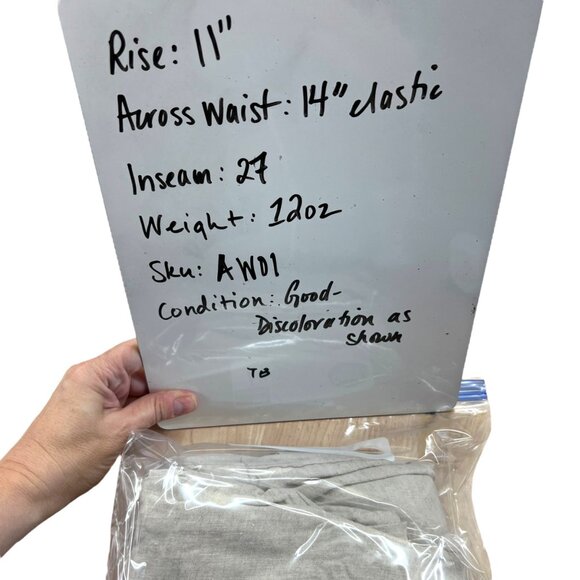 Rise: 11"
Across Waist: 14" elastic
Inseam: 27
Weight: 12oz
Sku: AW01
Condition: Good-
Discoloration as
shown
TB